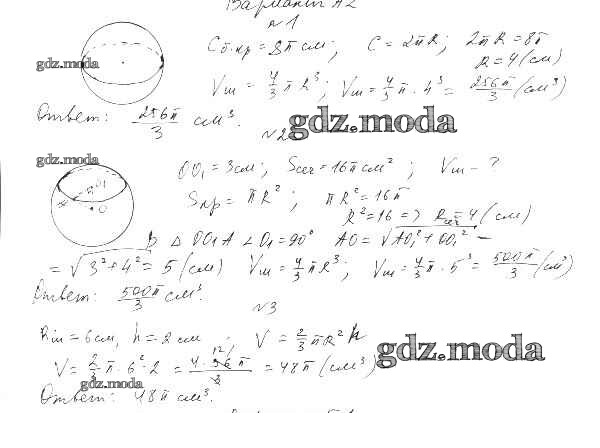 Вариант А2
№1
gdz.moda
C б.кр = 8π см; C = 2πR; 2πR = 8π
R = 4 (см)
Vш = 4/3 πR³; Vш = 4/3 π · 4³ = 256π/3 (см³)
Ответ: 256π/3 см³.
№2
gdz.moda
gdz.moda
OO₁ = 3см; Sсеч = 16π см²; Vш - ?
Sкр = πR²; πR² = 16π
R² = 16 => Rсеч = 4 (см)
В Δ OO₁A ∠O₁ = 90° AO = √AO₁² + OO₁² =
= √3² + 4² = 5 (см) Vш = 4/3 πR³; Vш = 4/3 π · 5³ = 500π/3 (см³)
Ответ: 500π/3 см³.
№3
Rш = 6см, h = 2 см; V = 2/3 πR²h
V = 2/3 π · 6² · 2 = 4 · 36π/3 = 48π (см³)
gdz.moda
gdz.moda
Ответ: 48π см³.